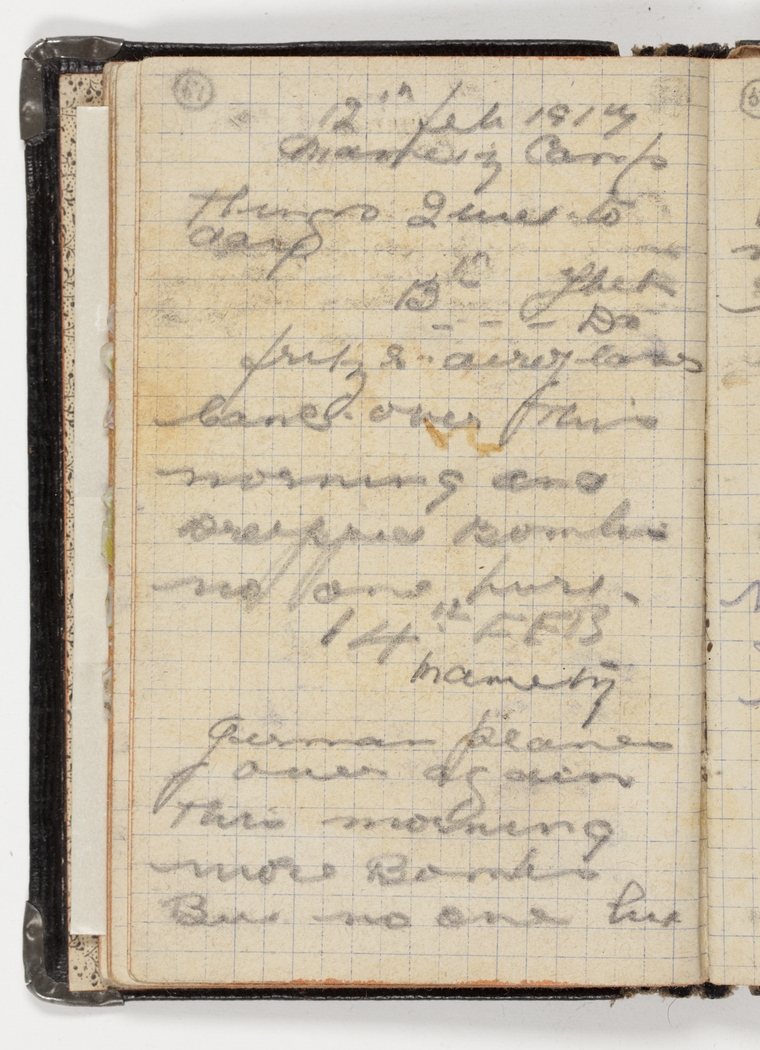 12th feb 1917
Mametz Camp
things Quiet to
day
13th
Do
fritz's aeroplanes
came over this
morning and
Dropped Bombs
no one hurt.
14th FEB
Mametz
German planes
over again
this morning
more Bombs
But no one hurt